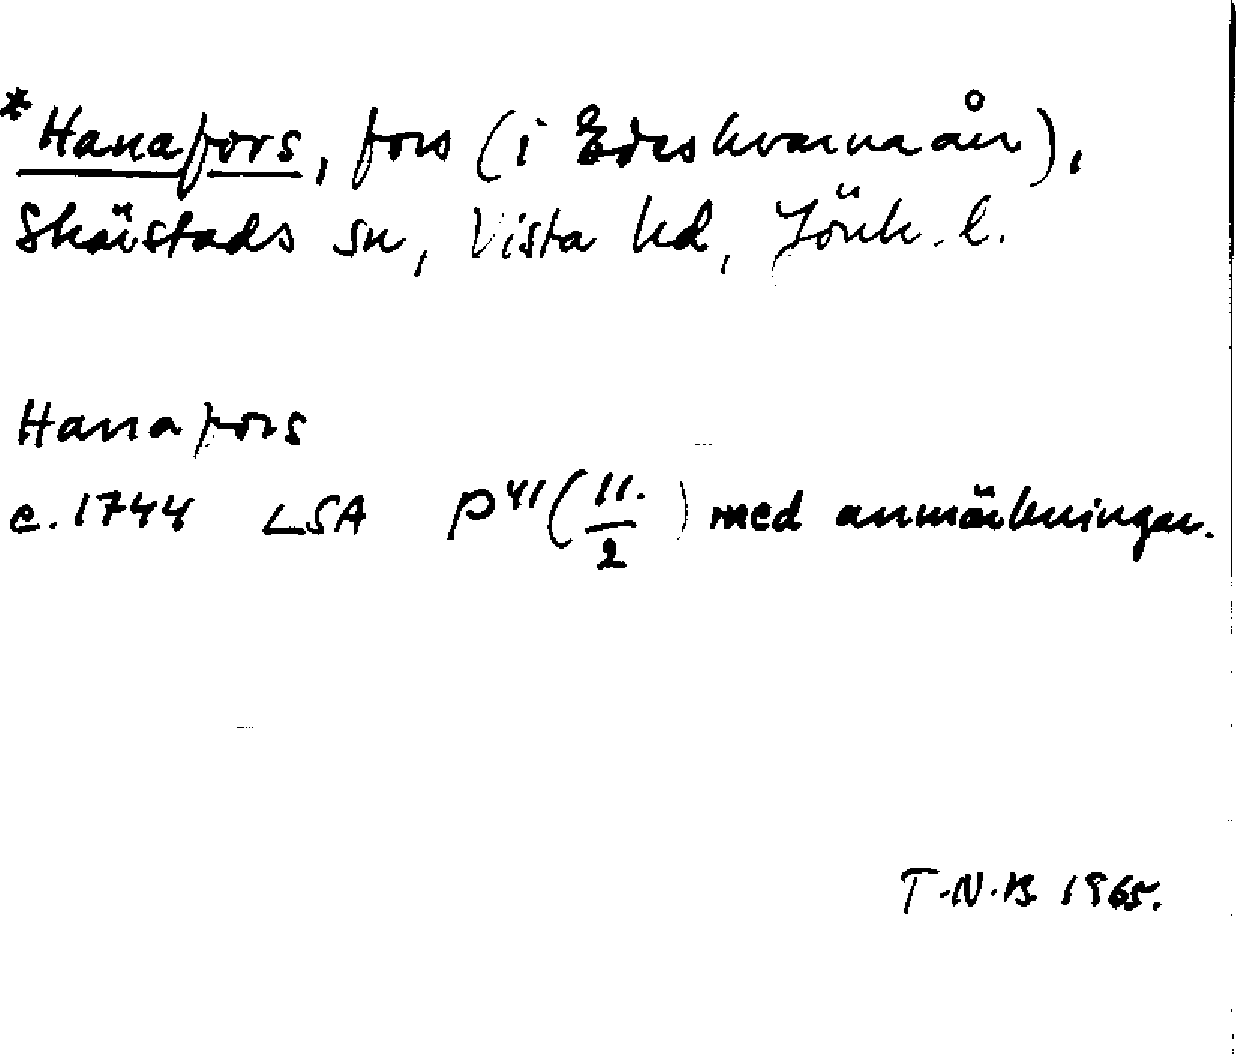 *Hanafors, fors (i Edeskvarnaån),
Skärstads sn, Vista hd, Jönk. l.
Hanafors
c. 1744 LSA P41 (11./2) med anmärkningar.
T.N.B. 1965.